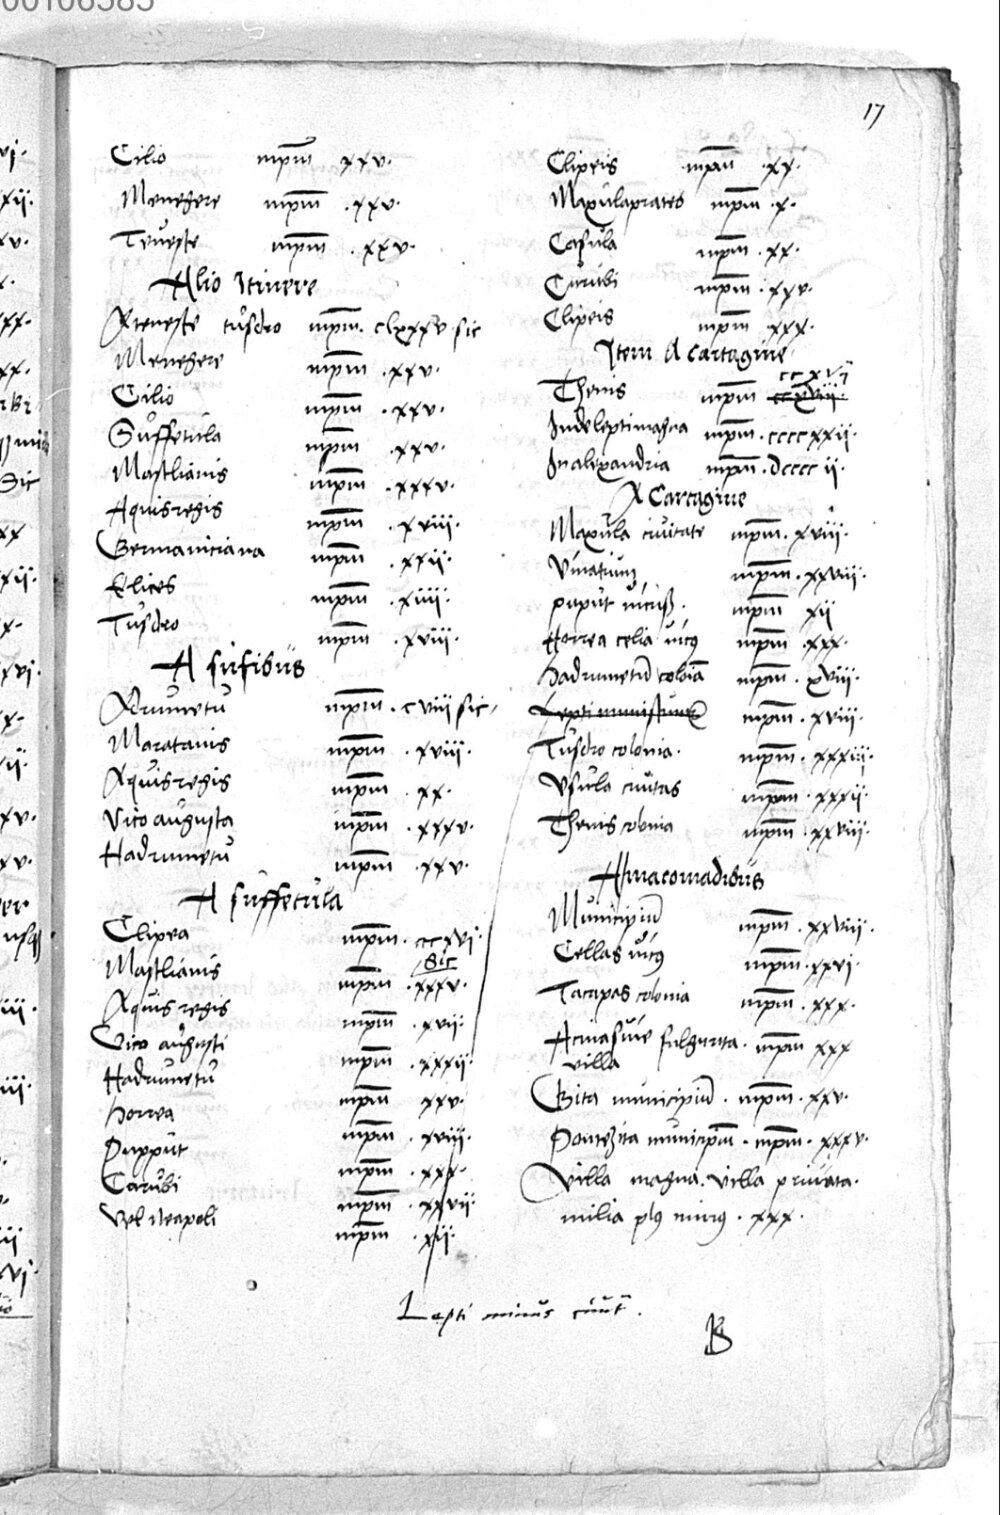 17
Cilio mpm xxv.
Menegere mpm .xxv.
Teveste mpm .xxv.
Alio Itinere
Ateveste tusdro mpm. clxxxv sic
Menegere mpm .xxv.
Cilio mpm .xxv.
Suffetula mpm .xxv.
Mastlianis mpm .xxxv.
Aquisregis mpm .xviii.
Germaniciana mpm .xxii.
Elices mpm .xiiii.
Tusdro mpm .xviii.
A sufibus
Adrumetu mpm. cviii sic
Maratanis mpm .xviii.
Aquisregis mpm .xx.
Vico augusta mpm .xxxv.
Hadrumetu mpm .xxv.
A suffetula
Clipea mpm. ccxvi.
sic
Mastlianis mpm .xxxv.
Aquis regis mpm .xvii.
Vico augusti mpm .xxxii.
Hadrumetu mpm xxv.
horrea mpm .xviii.
Pupput mpm .xxx.
Curubi mpm .xxvii.
Vel Neapoli mpm .xii.
Clipeis .mpm .xx.
Maxulaprates mpm .x.
Casula mpm .xx.
Curubi mpm .xxv.
Clipeis mpm .xxx.
Item A cartagine
ccxvi
Thenis mpm ccxviii.
Indeleptimagna mpm. ccccxxii.
In alexandria mpm. dcccc ii.
A Cartagine
Maxula civitate mpm. xviii.
Vinatium mpm. xxviii.
puput vicus. mpm xii
Horrea celia vicus mpm .xxx.
hadrumetum colonia mpm. xviii.
Leptiminus mpm .xviii.
Tusdro colonia. mpm. xxxiii.
Usula civitas mpm .xxxii.
Thenis colonia mpm .xxviii.
Amacomadibus
Municipium mpm. xxviii.
Cellas vicus mpm. xxvi.
Tacapas colonia mpm .xxx.
fulgurita. mpm xxx
villa
Gita municipium. mpm. xxv.
Pontezita municipium. mpm. xxxv.
Villa magna. villa privata.
milia plus minus. xxx.
Lepti minus civit.